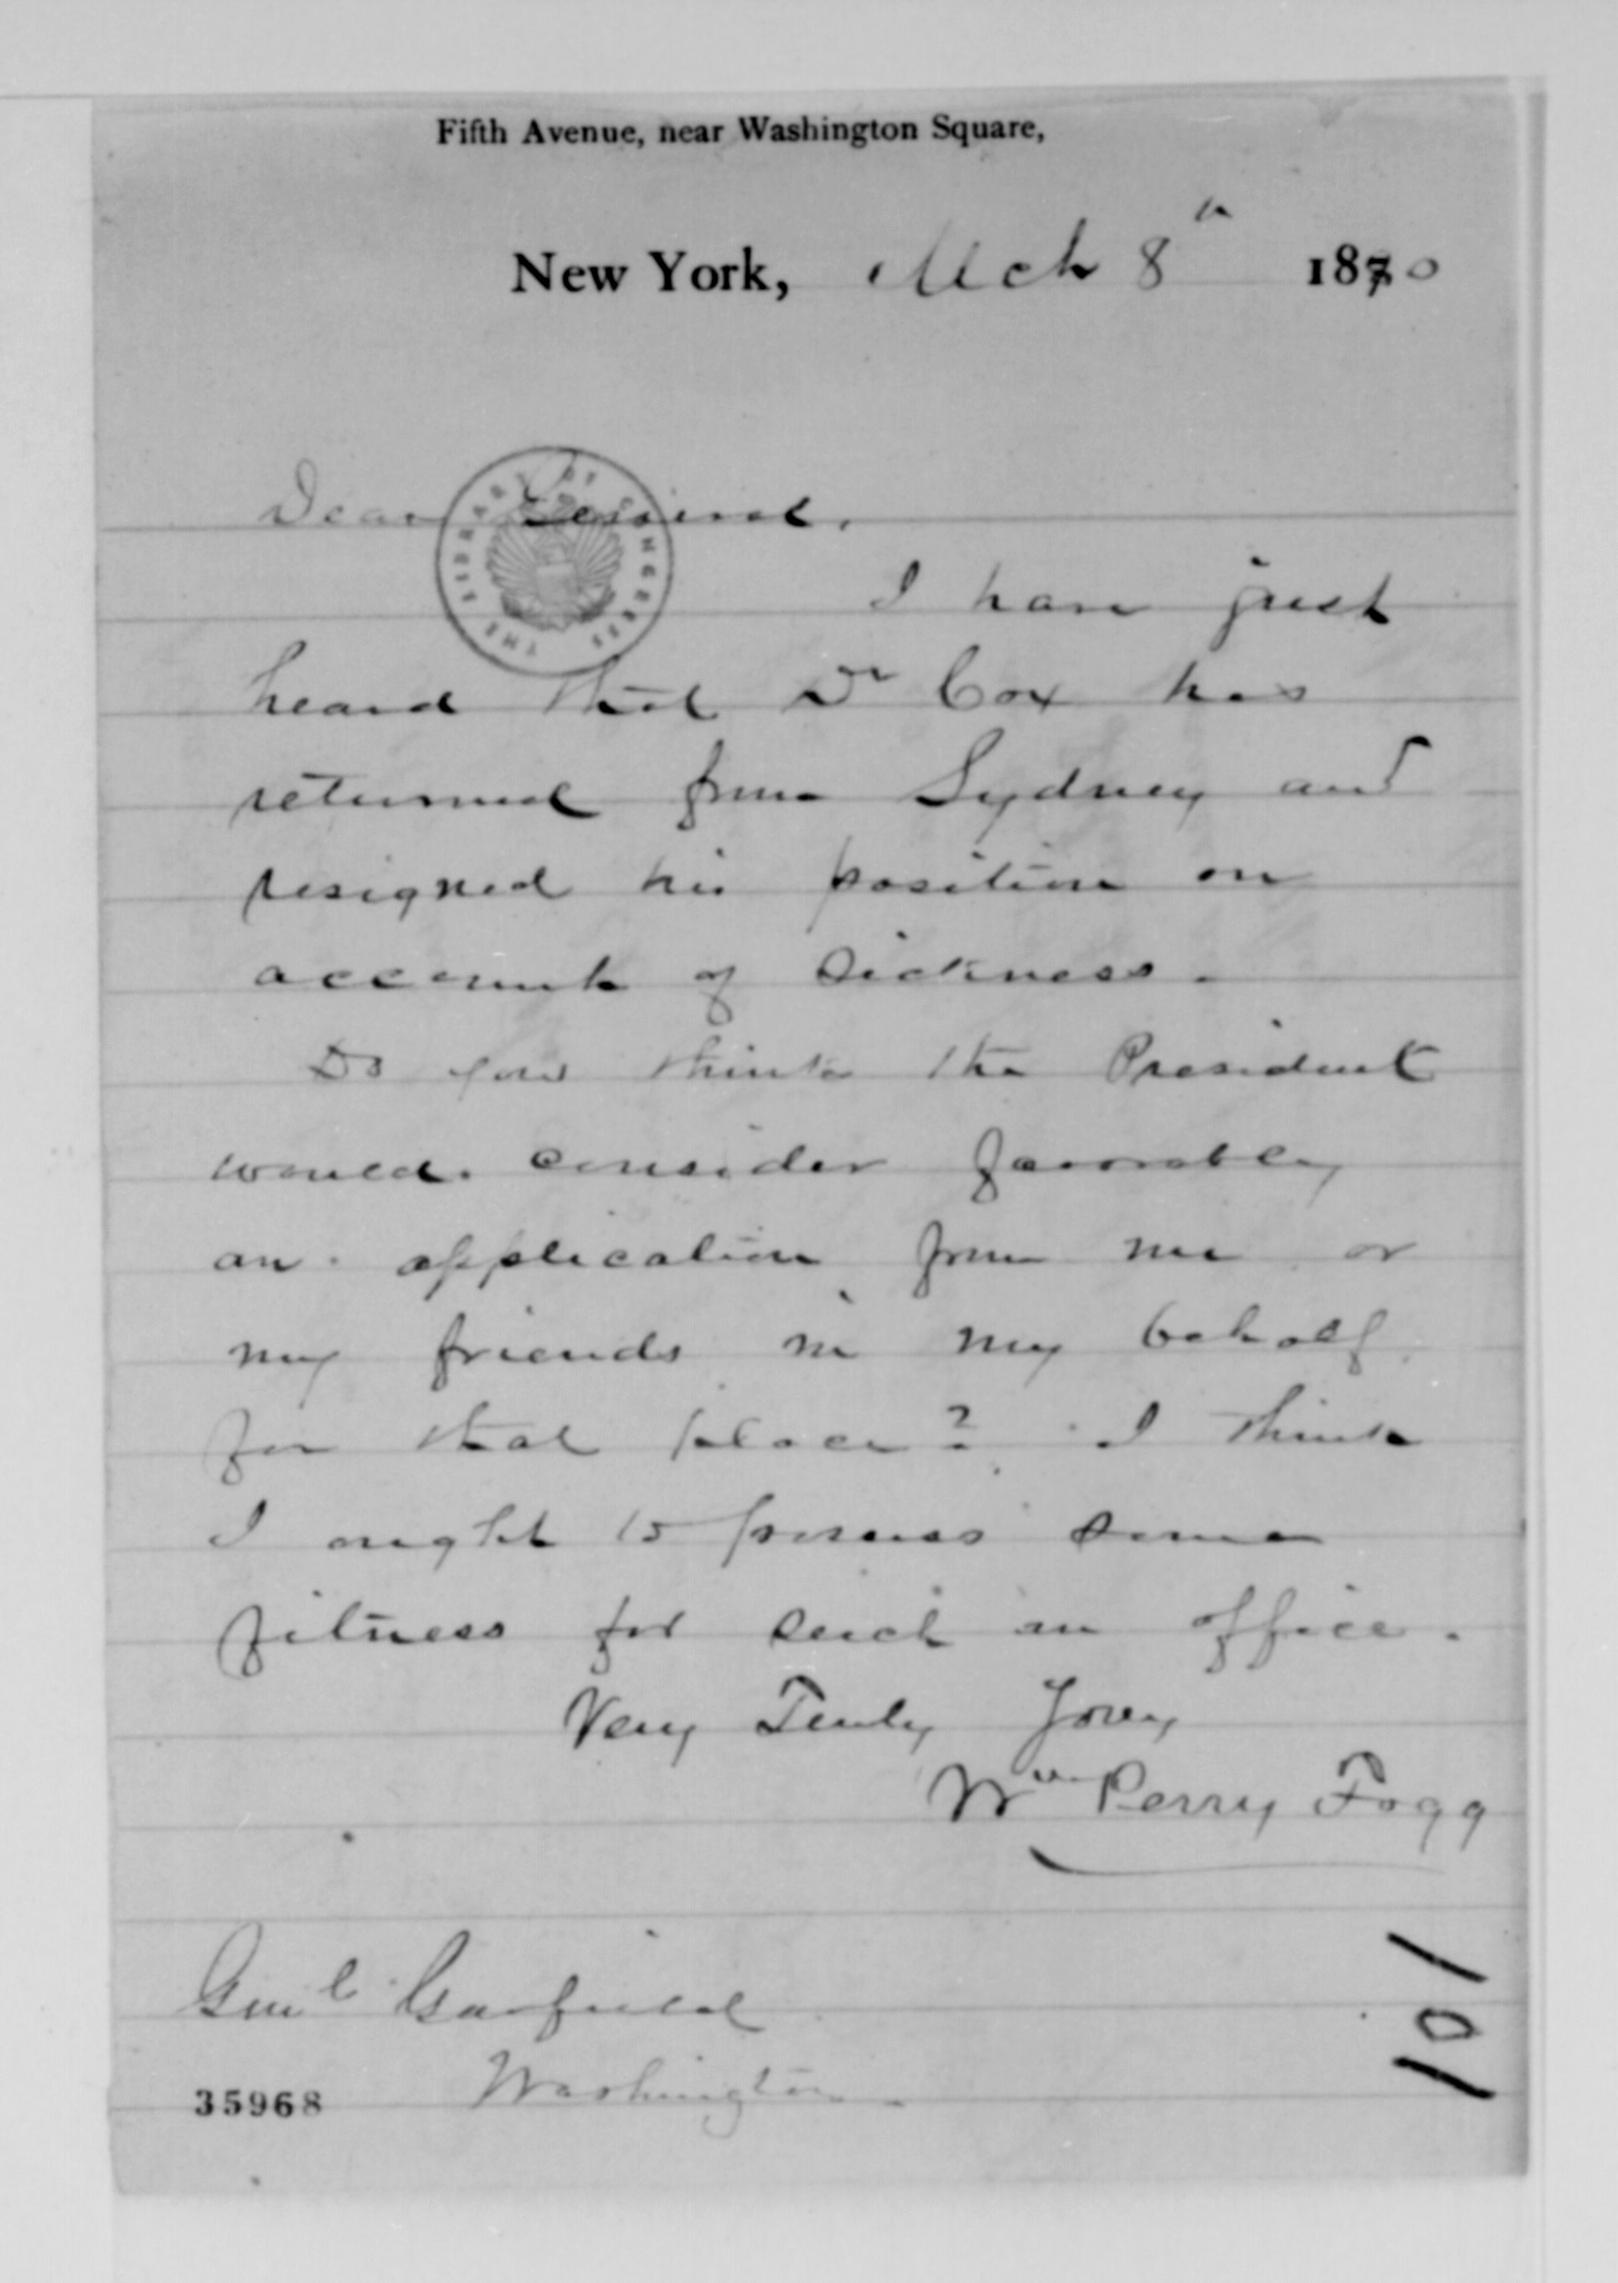 Fifth Avenue, near Washington Square,
New York, Mch 8th 1880
Dear General,
THE LIBRARY OF CONGRESS
I have just
heard that Dr Cox has
returned from Sydney and
resigned his position on
account of sickness.
Do you think the President
would consider favorably
an application from me or
my friends in my behalf
for that place? I think
I ought to possess some
fitness for such an office.
Very Truly Yours
Wm Perry Fogg
Genl Garfield
Washington
35968
101